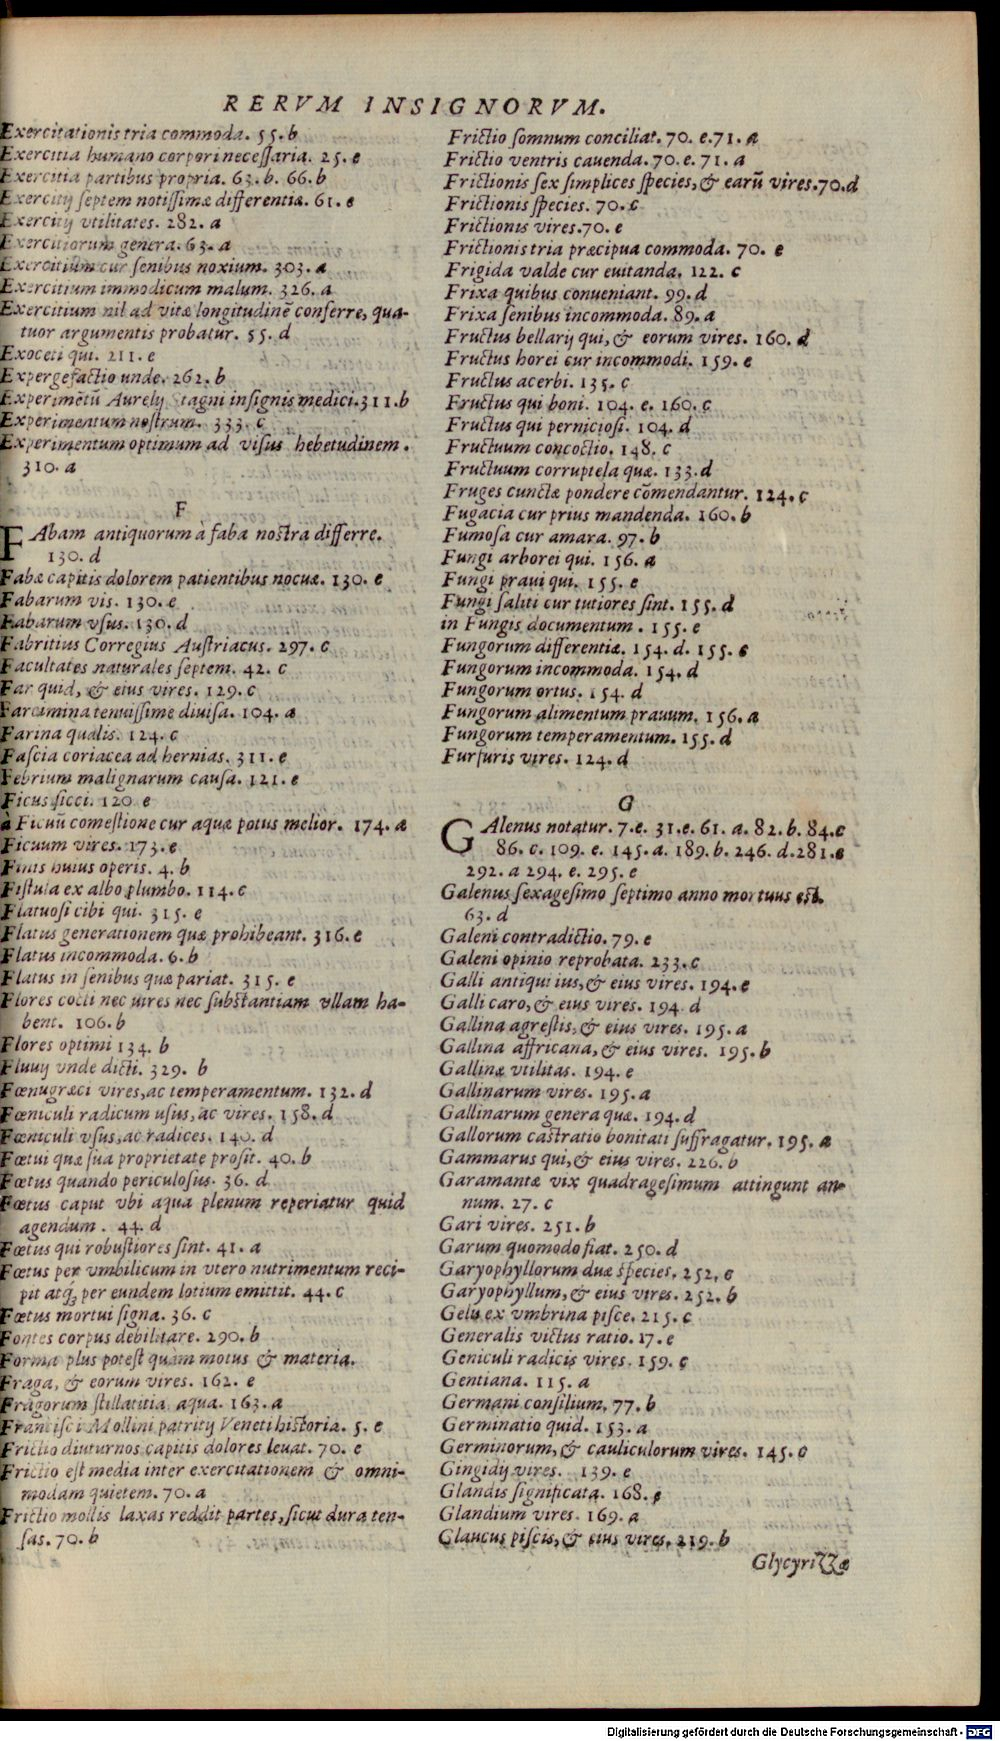 RERVM INSIGNORVM.
Exercitationis tria commoda. 55. b
Exercitia humano corpori necessaria. 25. e
Exercitia partibus propria. 63. b. 66. b
Exercitij septem notissimæ differentiæ. 61. e
Exercitij vtilitates. 282. a
Exercitiorum genera. 63. a
Exercitium cur senibus noxium. 303. a
Exercitium immodicum malum. 326. a
Exercitium nil ad vitæ longitudinē conferre, qua-
tuor argumentis probatur. 55. d
Exoceti qui. 211. e
Expergefactio unde. 262. b
Experimētū Aurelij Stagni insignis medici. 311. b
Experimentum nostrum. 333. c
Experimentum optimum ad visus hebetudinem.
310. a
F
FAbam antiquorum à faba nostra differre.
130. d
Fabæ capitis dolorem patientibus nocuæ. 130. e
Fabarum vis. 130. e
Fabarum vsus. 130. d
Fabritius Corregius Austriacus. 297. c
Facultates naturales septem. 42. c
Far quid, & eius vires. 129. c
Farcimina tenuissime diuisa. 104. a
Farina qualis. 124. c
Fascia coriacea ad hernias. 311. e
Febrium malignarum causa. 121. e
Ficus sicci. 120 e
à Ficuū comestione cur aquæ potus melior. 174. a
Ficuum vires. 173. e
Finis huius operis. 4. b
Fistula ex albo plumbo. 114. c
Flatuosi cibi qui. 315. e
Flatus generationem quæ prohibeant. 316. e
Flatus incommoda. 6. b
Flatus in senibus quæ pariat. 315. e
Flores cocti nec uires nec substantiam vllam ha-
bent. 106. b
Flores optimi 134. b
Fluuij vnde dicti. 329. b
Fœnugræci vires, ac temperamentum. 132. d
Fœniculi radicum usus, ac vires. 158. d
Fœniculi vsus, ac radices. 140. d
Fœtui quæ sua proprietate prosit. 40. b
Fœtus quando periculosius. 36. d
Fœtus caput vbi aqua plenum reperiatur quid
agendum. 44. d
Fœtus qui robustiores sint. 41. a
Fœtus per vmbilicum in vtero nutrimentum reci-
pit atq; per eundem lotium emittit. 44. c
Fœtus mortui signa. 36. c
Fontes corpus debilitare. 290. b
Forma plus potest quàm motus & materia.
Fraga, & eorum vires. 162. e
Fragorum stillatitia aqua. 163. a
Francisci Mollini patritij Veneti historia. 5. e
Frictio diuturnos capitis dolores leuat. 70. e
Frictio est media inter exercitationem & omni-
modam quietem. 70. a
Frictio mollis laxas reddit partes, sicut dura ten-
sas. 70. b
Frictio somnum conciliat. 70. e. 71. a
Frictio ventris cauenda. 70. e. 71. a
Frictionis sex simplices species, & earū vires. 70. d
Frictionis species. 70. c
Frictionis vires. 70. e
Frictionis tria præcipua commoda. 70. e
Frigida valde cur euitanda. 122. c
Frixa quibus conueniant. 99. d
Frixa senibus incommoda. 89. a
Fructus bellarij qui, & eorum vires. 160. d
Fructus horei cur incommodi. 159. e
Fructus acerbi. 135. c
Fructus qui boni. 104. e. 160. c
Fructus qui perniciosi. 104. d
Fructuum concoctio. 148. c
Fructuum corruptela quæ. 133. d
Fruges cunctæ pondere cōmendantur. 124. c
Fugacia cur prius mandenda. 160. b
Fumosa cur amara. 97. b
Fungi arborei qui. 156. a
Fungi praui qui. 155. e
Fungi saliti cur tutiores sint. 155. d
in Fungis documentum. 155. e
Fungorum differentiæ. 154. d. 155. c
Fungorum incommoda. 154. d
Fungorum ortus. 154. d
Fungorum alimentum prauum. 156. a
Fungorum temperamentum. 155. d
Furfuris vires. 124. d
G
GAlenus notatur. 7. e. 31. e. 61. a. 82. b. 84. c
86. c. 109. e. 145. a. 189. b. 246. d. 281. e
292. a 294. e. 295. e
Galenus sexagesimo septimo anno mortuus est.
63. d
Galeni contradictio. 79. e
Galeni opinio reprobata. 233. c
Galli antiqui ius, & eius vires. 194. e
Galli caro, & eius vires. 194. d
Gallina agrestis, & eius vires. 195. a
Gallina affricana, & eius vires. 195. b
Gallinæ vtilitas. 194. e
Gallinarum vires. 195. a
Gallinarum genera quæ. 194. d
Gallorum castratio bonitati suffragatur. 195. a
Gammarus qui, & eius vires. 226. b
Garamantæ vix quadragesimum attingunt an-
num. 27. c
Gari vires. 251. b
Garum quomodo fiat. 250. d
Garyophyllorum duæ species. 252. c
Garyophyllum, & eius vires. 252. b
Gelu ex vmbrina pisce. 215. c
Generalis victus ratio. 17. e
Geniculi radicis vires. 159. c
Gentiana. 115. a
Germani consilium. 77. b
Germinatio quid. 153. a
Germinorum, & cauliculorum vires. 145. c
Gingidij vires. 139. e
Glandis significata. 168. e
Glandium vires. 169. a
Glaucus piscis, & eius vires. 219. b
Glycyrizzæ
Digitalisierung gefördert durch die Deutsche Forschungsgemeinschaft - DFG